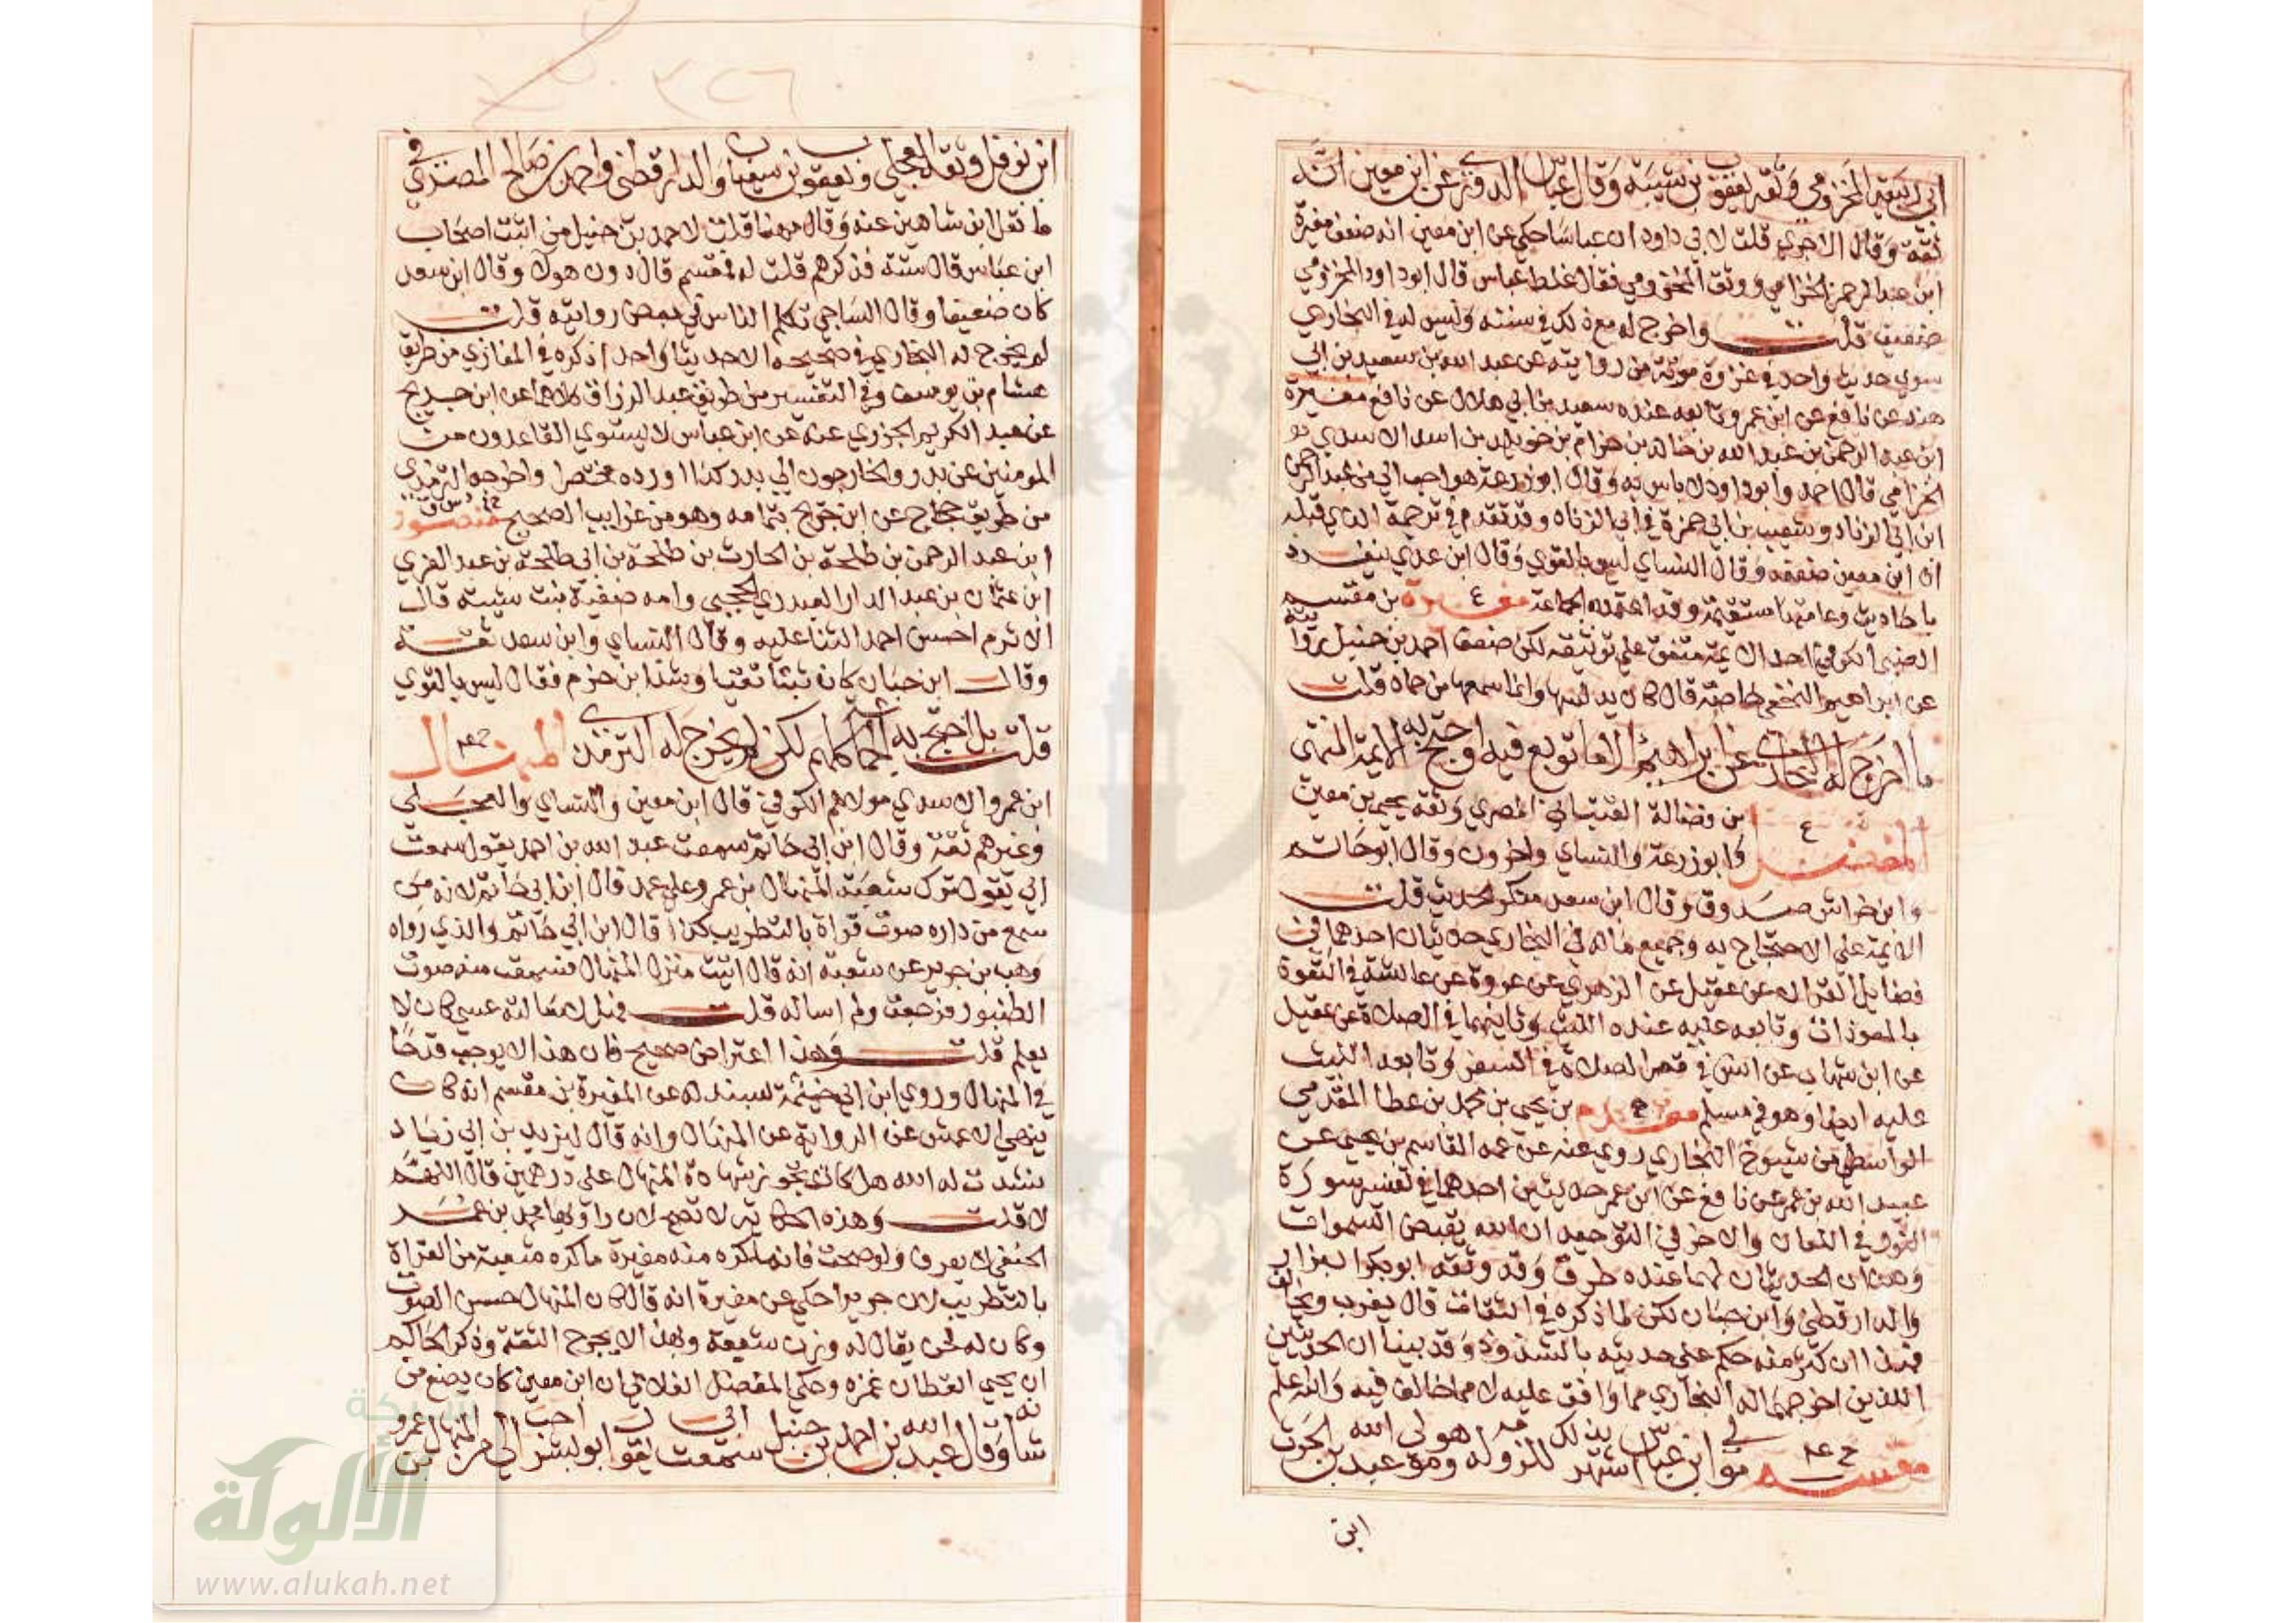 ابي ربيعة المخزومي وثقه يعقوب بن شيبة وقال عباس الدوري عن ابن معين انه
ثقة وقال الاجري قلت لابي داود ان عباسا حكى عن ابن معين انه ضعف مغيرة
ابن عبد الرحمن الحزامي ووثق المخزومي فقال غلط عباس قال ابو داود المخزومي
ضعيف قلت واخرج له مع ذلك في سننه وليس له في البخاري
سوى حديث واحد في غزوة موتة من روايته عن عبد الله بن سعيد بن ابي
هند عن نافع عن ابن عمر وتابعه عنده سعيد بن ابي هلال عن نافع مغيرة
ابن عبد الرحمن بن عبد الله بن خالد بن حزام بن خويلد بن اسد الاسدي
الحزامي قال احمد وابو داود لا باس به وقال ابو زرعة هو احب الي من عبد الرحمن
ابن ابي الزناد وشعيب بن ابي حمزة في ابي الزناد وقد تقدم في ترجمة الذي قبله
ان ابن معين ضعفه وقال النساي ليس بالقوي وقال ابن عدي ينفرد
باحاديث وعامتها مستقيمة وقد اعتمده الجماعة مغيرة ع بن مقسم
الضبي الكوفي احد الايمة متفق على توثيقه لكن ضعف احمد بن حنبل روايته
عن ابراهيم النخعي خاصة قال كان يدلسها وانما سمعها من حماد قلت
ما اخرج له البخاري عن ابراهيم الا ما توبع فيه واحتج به الايمة
المفضل ع بن فضالة القتباني المصري وثقه يحيى بن معين
وابو زرعة والنساي واخرون وقال ابو حاتم
وابن خراش صدوق وقال ابن سعد منكر الحديث قلت
الايمة على الاحتجاج به وجميع ماله في البخاري حديثان احدهما في
فضايل القران عن عقيل عن الزهري عن عروة عن عائشة في التعوذ
بالمعوذات وتابعه عليه عنده الليث وثانيهما في الصلاة عن عقيل
عن ابن شهاب عن انس في قصر الصلاة في السفر وتابعه الليث
عليه ايضا وهو في مسلم مقدم خ بن يحيى بن محمد بن عطا المقدمي
الواسطي من شيوخ البخاري روى عنه عن عمه القاسم بن يحيى عن
عبيد الله بن عمر عن نافع عن ابن عمر حديثين احدهما في تفسير سورة
النور في اللعان والاخر في التوحيد ان الله يقبض السموات
وهذان الحديثان لهما عنده طرق وقد وثقه ابو بكر البزار
والدارقطني وابن حبان لكن لما ذكره في الثقات قال يغرب ويخالف
فهذا ان كثر منه حكم على حديثه بالشذوذ وقد بينا ان الحديثين
اللذين اخرجهما له البخاري مما وافق عليه لا مما خالف فيه والله اعلم
مقسم خ عه مولى ابن عباس اشتهر بذلك للزومه له وهو مولى عبد الله بن الحرث
ابن
٣٢٦
ابن نوفل وثقه العجلي ويعقوب بن سفيان والدارقطني واحمد بن صالح المصري في
ما نقل ابن شاهين عنه وقال مهنا قلت لاحمد بن حنبل من اثبت اصحاب
ابن عباس قال ستة فذكرهم قلت له فمقسم قال دون هولا وقال ابن سعد
كان ضعيفا وقال الساجي تكلم الناس في بعض روايته قلت
لم يخرج له البخاري في صحيحه الا حديثا واحدا ذكره في المغازي من طريق
هشام بن يوسف وفي التفسير من طريق عبد الرزاق كلاهما عن ابن جريج
عن عبد الكريم الجزري عنه عن ابن عباس لا يستوي القاعدون من
المومنين عن بدر والخارجون الى بدر كذا اورده مختصرا واخرجه الترمذي
من طريق حجاج عن ابن جريج بتمامه وهو من غرايب الصحيح منصور
ابن عبد الرحمن بن طلحة بن الحارث بن طلحة بن ابي طلحة بن عبد العزي
ابن عثمان بن عبد الدار العبدري الحجبي وامه صفية بنت شيبة قال
الاثرم احسن احمد الثنا عليه وقال النساي وابن سعد ثقة
وقال ابن حبان كان ثبتا تقيا وشذ ابن حزم فقال ليس بالقوي
قلت بل احتج به الجماعة كلهم لكن لم يخرج له الترمذي المنهال خ عه
ابن عمرو الاسدي مولاهم الكوفي قال ابن معين والنساي والعجلي
وغيرهم ثقة وقال ابن ابي حاتم سمعت عبد الله بن احمد يقول سمعت
ابي يقول ترك شعبة المنهال بن عمرو على عمد قال ابن ابي حاتم لانه
سمع من داره صوت قراة بالتطريب كذا قال ابن ابي حاتم والذي رواه
وهب بن جرير عن شعبة انه قال اتيت منزل المنهال فسمعت منه صوت
الطنبور فرجعت ولم اساله قلت فهلا سالته عسى كان لا
يعلم قلت وهذا اعتراض صحيح فان هذا لا يوجب قدحا
في المنهال وروى ابن ابي خيثمة بسند له عن المغيرة بن مقسم انه كان
ينهى الاعمش عن الرواية عن المنهال وانه قال ليزيد بن ابي زياد
نشدت له الله هل كانت تجوز شهادة المنهال على درهمين قال اللهم
لا قلت وهذه الحكاية لا تصح لان راويها محمد بن عمر
الحنفي لا يعرف ولو صحت فانما كره منه مغيرة ما كره شعبة من القراة
بالتطريب لان جريرا حكى عن مغيرة انه قال كان المنهال حسن الصوت
وكان له لحن يقال له وزن سبعة وبهذا لا يجرح الثقة وذكر الحاكم
ان يحيى القطان غمزه وحكى المفضل الغلابي ان ابن معين كان يضع من
شانه وقال عبد الله بن احمد بن حنبل سمعت ابي يقول ابو بشر احب الي من المنهال بن عمرو
شبكة
الألوكة
www.alukah.net